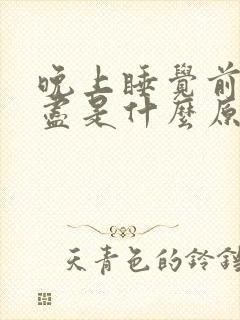 晚上睡覺前
盡是什麼原
天青色的鈴鐺